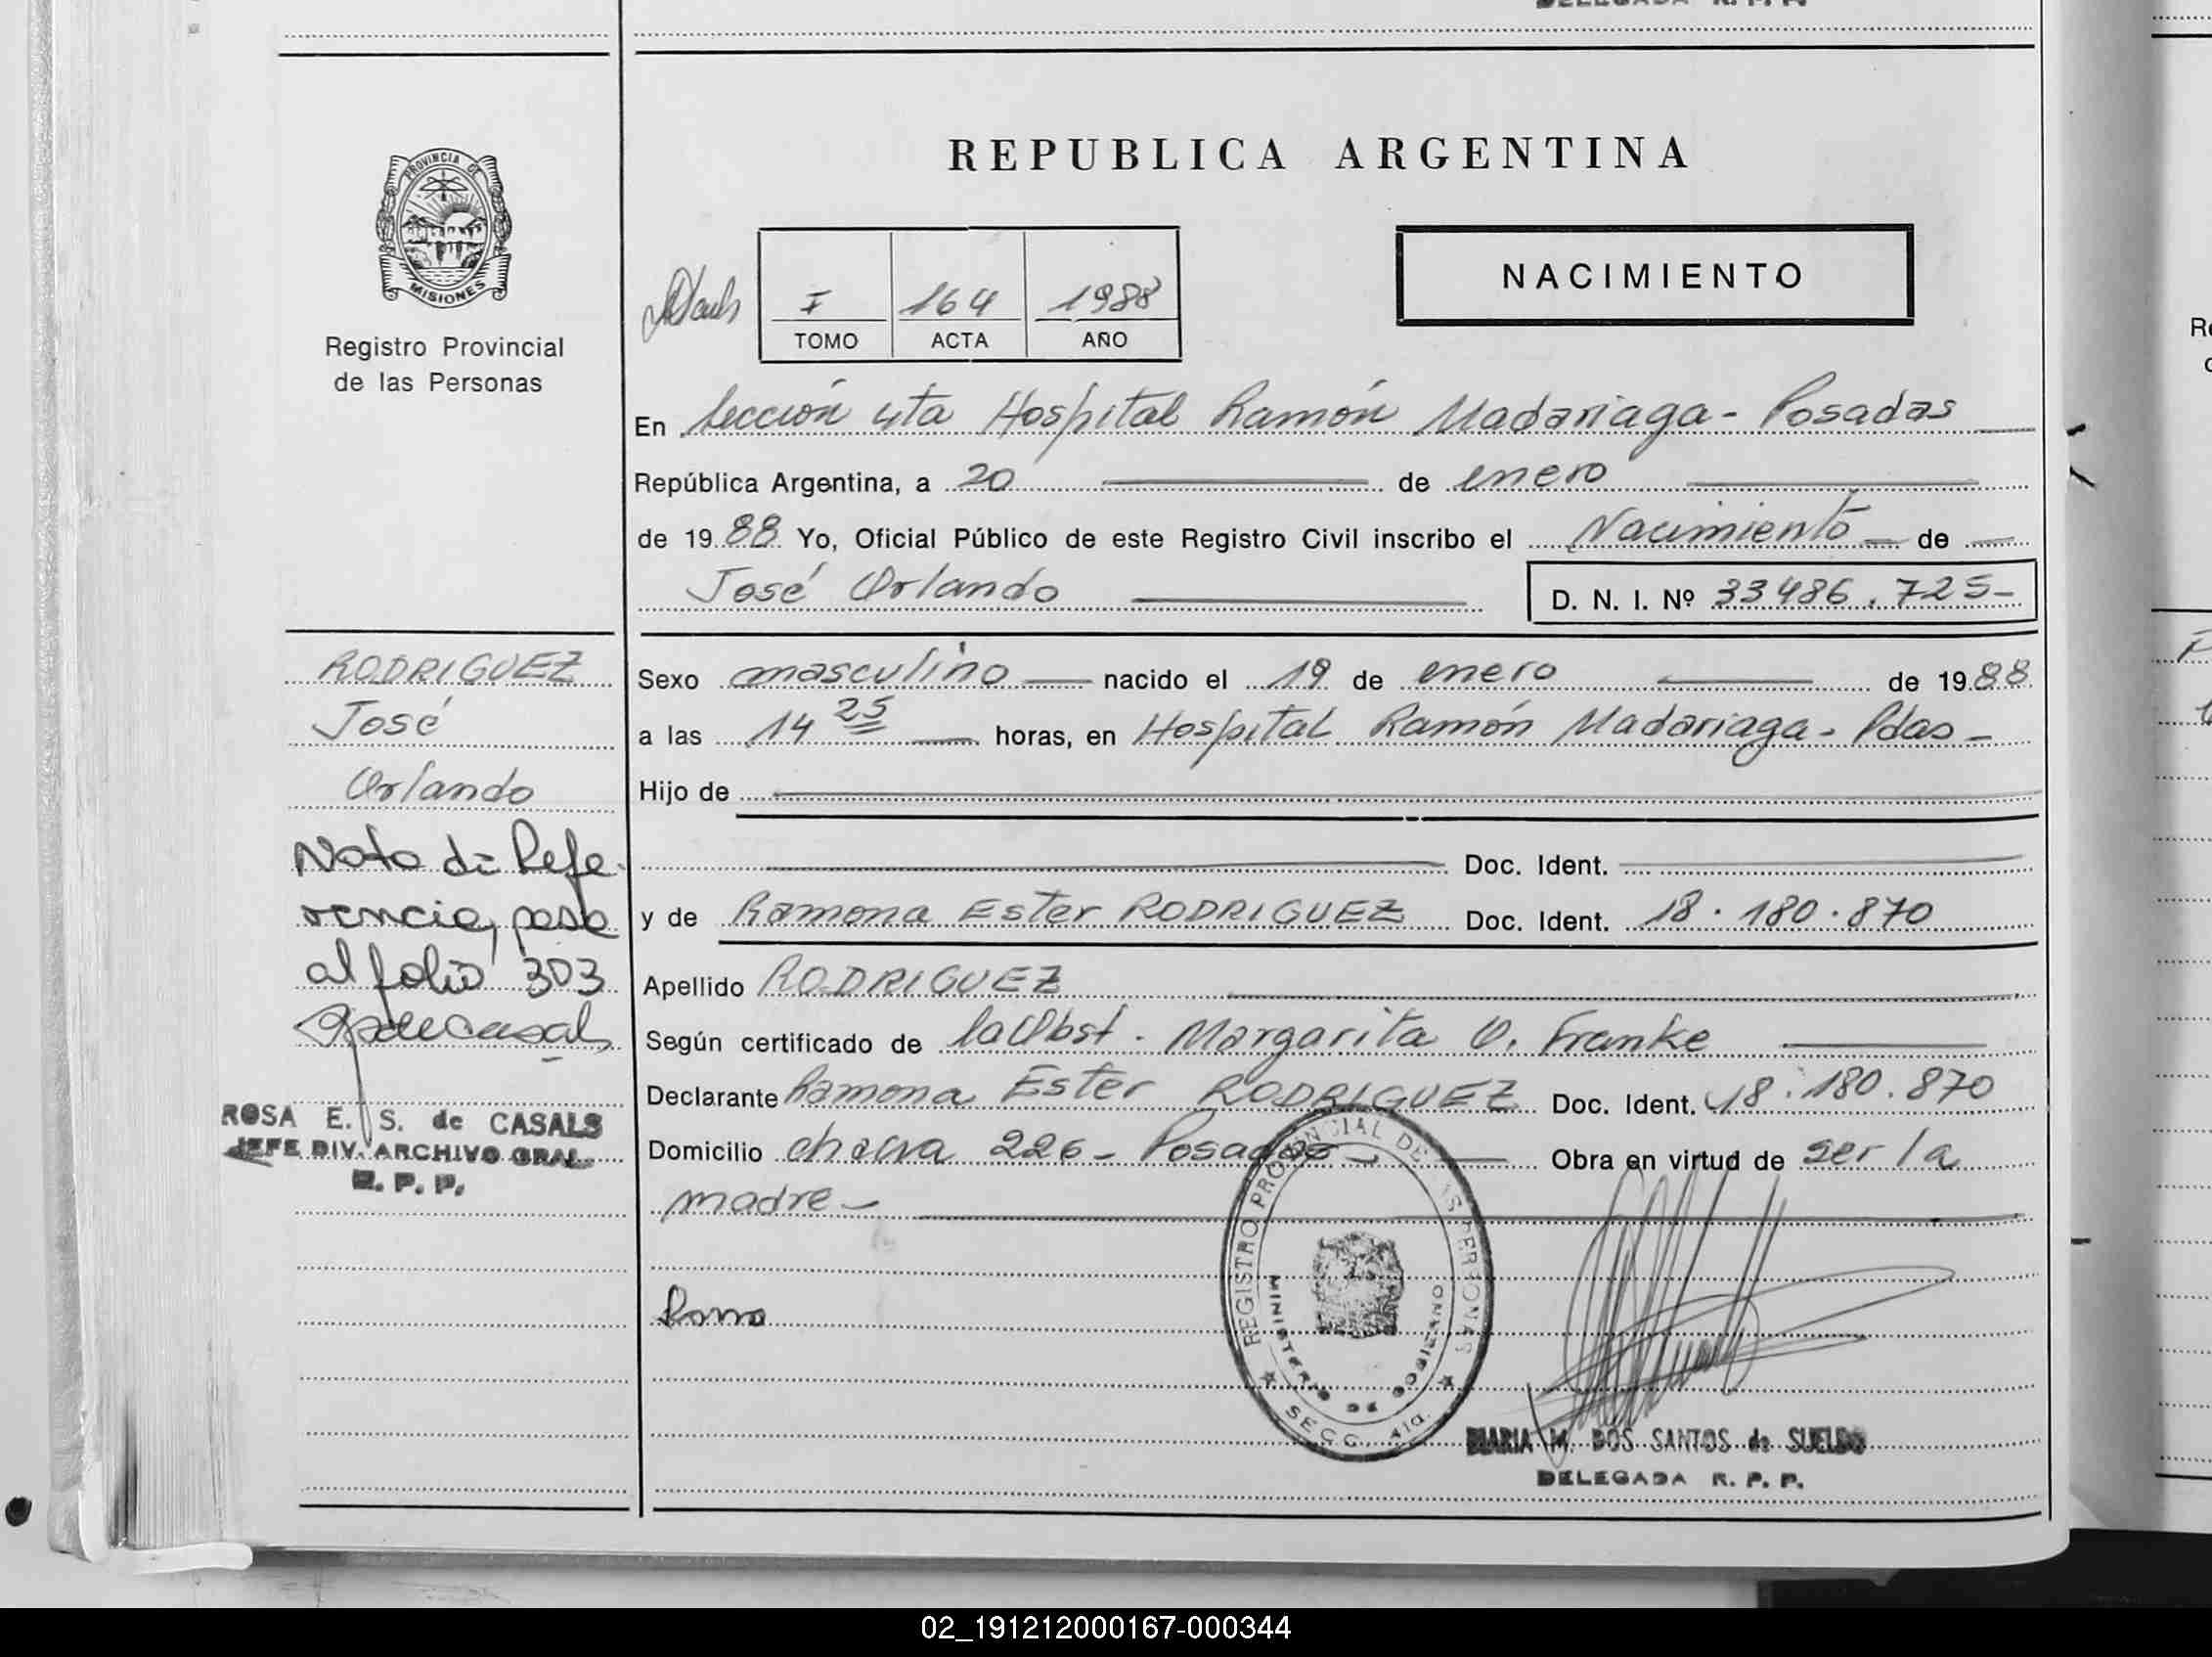 DELEGADA R. P. P.
PROVINCIA DE
MISIONES
Registro Provincial
de las Personas
REPUBLICA ARGENTINA
I 164 1988
TOMO ACTA AÑO
NACIMIENTO
En Sección 4ta Hospital Ramón Madariaga - Posadas
República Argentina, a 20 de enero
de 1988 Yo, Oficial Público de este Registro Civil inscribo el Nacimiento de
José Orlando D. N. I. Nº 33486.725-
RODRIGUEZ
José
Orlando
Nota de Refe-
rencia, pasa
al folio 303
ROSA E. S. de CASALS
JEFE DIV. ARCHIVO GRAL.
R. P. P.
Sexo masculino nacido el 19 de enero de 1988
a las 14 25 horas, en Hospital Ramón Madariaga - Pdas -
Hijo de
Doc. Ident.
y de Ramona Ester RODRIGUEZ Doc. Ident. 18.180.870
Apellido RODRIGUEZ
Según certificado de la Obst. Margarita O. Franke
Declarante Ramona Ester RODRIGUEZ Doc. Ident. 18.180.870
Domicilio chacra 226 - Posadas - Obra en virtud de ser la
madre -
REGISTRO PROVINCIAL DE LAS PERSONAS
MINISTERIO DE GOBIERNO
SECC. 4ta.
MARIA M. DOS SANTOS de SUELDO
DELEGADA R. P. P.
02_191212000167-000344